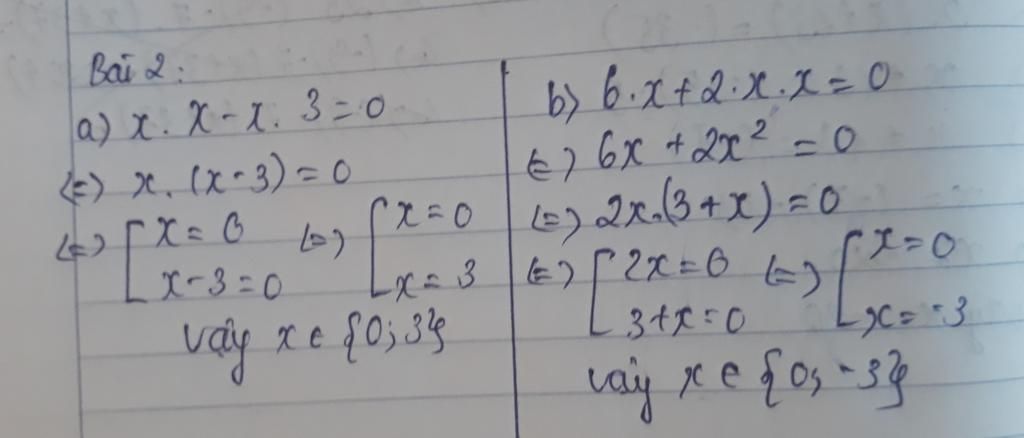 Bài 2:
a) x . x - x . 3 = 0
<=> x . (x - 3) = 0
<=> [ x = 0 <=> [ x = 0
x - 3 = 0 x = 3
Vậy x ∈ {0; 3}
b) 6 . x + 2 . x . x = 0
<=> 6x + 2x² = 0
<=> 2x . (3 + x) = 0
<=> [ 2x = 0 <=> [ x = 0
3 + x = 0 x = -3
vậy x ∈ {0; -3}